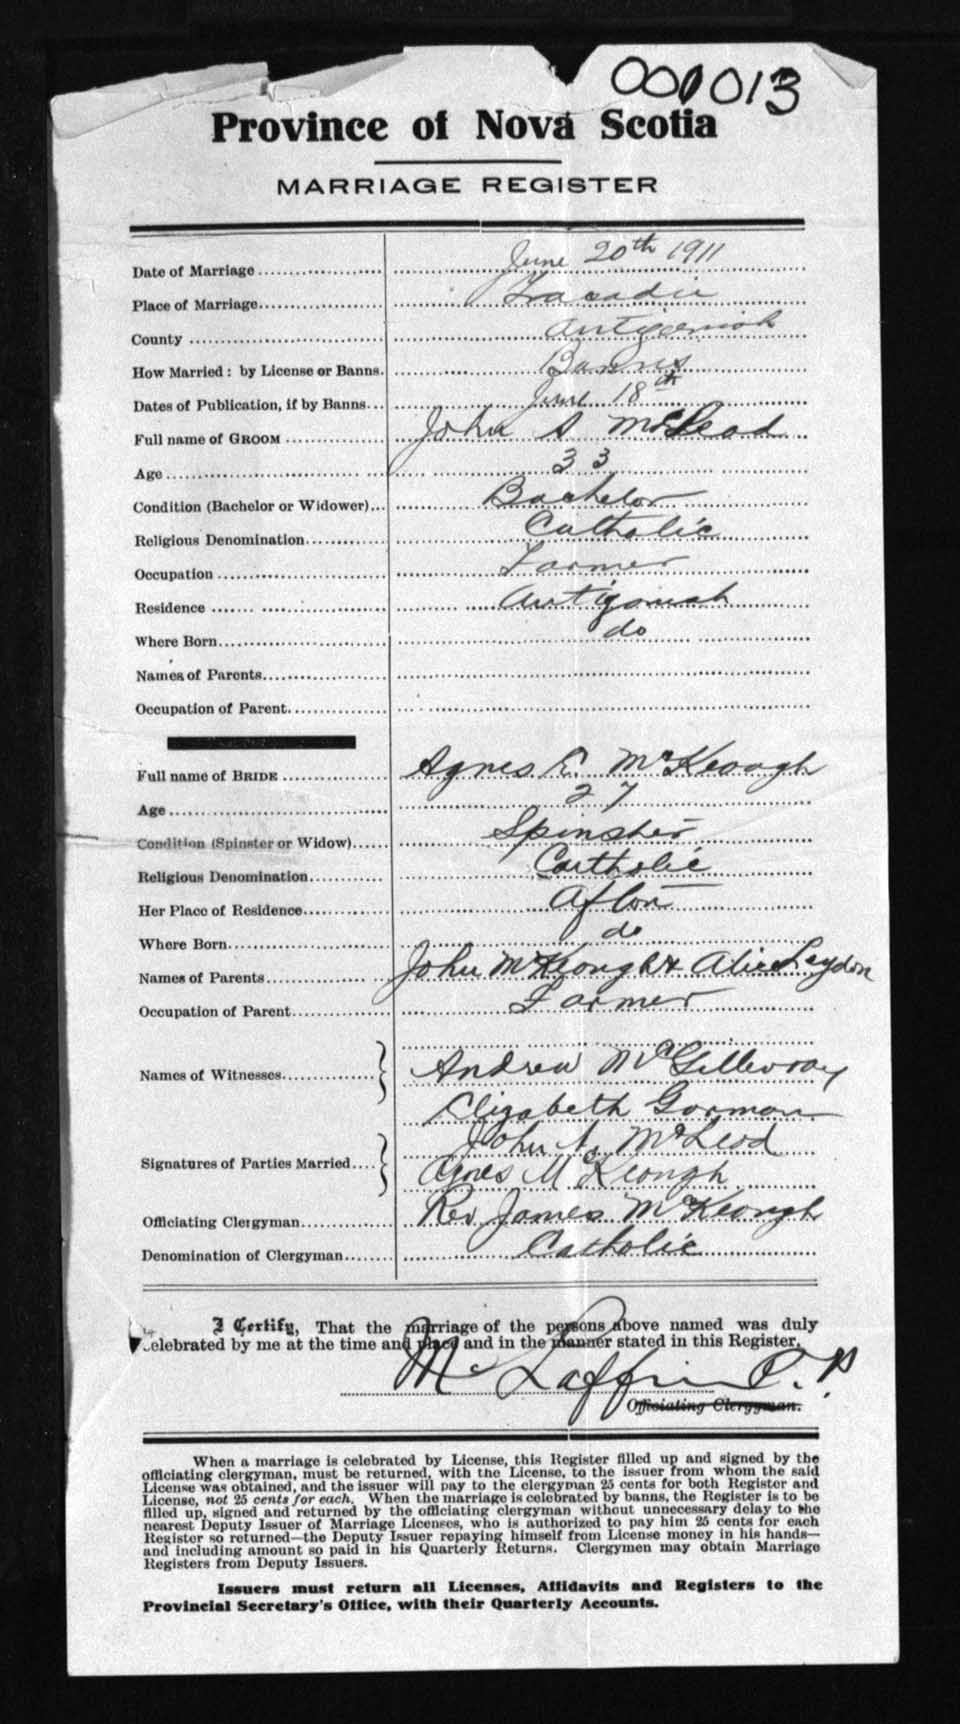 000013
Province of Nova Scotia
MARRIAGE REGISTER
Date of Marriage June 20th 1911
Place of Marriage Tracadie
County Antigonish
How Married: by License or Banns. Banns
Dates of Publication, if by Banns June 18th
Full name of GROOM John A McLeod
Age 33
Condition (Bachelor or Widower) Bachelor
Religious Denomination Catholic
Occupation Farmer
Residence Antigonish
Where Born do
Names of Parents
Occupation of Parent
Full name of BRIDE Agnes E. McKeough
Age 27
Condition (Spinster or Widow) Spinster
Religious Denomination Catholic
Her Place of Residence Afton
Where Born do
Names of Parents John McKeough & Alice Leydon
Occupation of Parent Farmer
Names of Witnesses Andrew McGillivray
Elizabeth Gorman
Signatures of Parties Married John A. McLeod
Agnes McKeough
Officiating Clergyman Rev James McKeough
Denomination of Clergyman Catholic
I Certify, That the marriage of the persons above named was duly
celebrated by me at the time and place and in the manner stated in this Register.
M Laffin P.P.
Officiating Clergyman.
When a marriage is celebrated by License, this Register filled up and signed by the
officiating clergyman, must be returned, with the License, to the issuer from whom the said
License was obtained, and the issuer will pay to the clergyman 25 cents for both Register and
License, not 25 cents for each. When the marriage is celebrated by banns, the Register is to be
filled up, signed and returned by the officiating clergyman without unnecessary delay to the
nearest Deputy Issuer of Marriage Licenses, who is authorized to pay him 25 cents for each
Register so returned—the Deputy Issuer repaying himself from License money in his hands—
and including amount so paid in his Quarterly Returns. Clergymen may obtain Marriage
Registers from Deputy Issuers.
Issuers must return all Licenses, Affidavits and Registers to the
Provincial Secretary's Office, with their Quarterly Accounts.